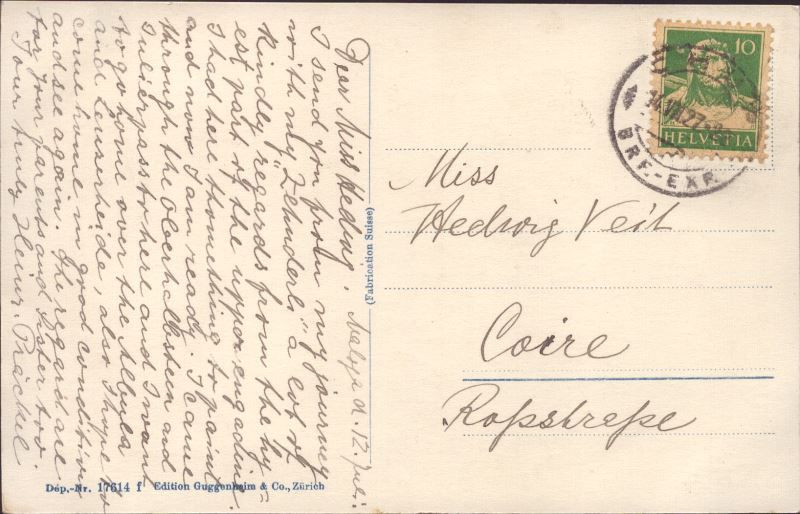 Dear Miss Hedwig. Maloja d. 12. Juli.
I send you from my journey
with my "Zehnderli" a lot of
kindly regards from the hy=
est part of the upper engadine.
I had here thomething to paint
and now I am ready. I came
through the Oberhalbstein and
Julierpass to here and I want
to go home over the Albula
and Lenzerheide, also I hope to
come home in good condition
and see again. The regards are
for your parents and sister too.
Your truely Heinz. Präckel.
(Fabrication Suisse)
Dép.-Nr. 17614 f Edition Guggenheim & Co., Zürich
10
HELVETIA
BRF.-EXP.
Miss
Hedwig Veit
Coire
Roßstraße